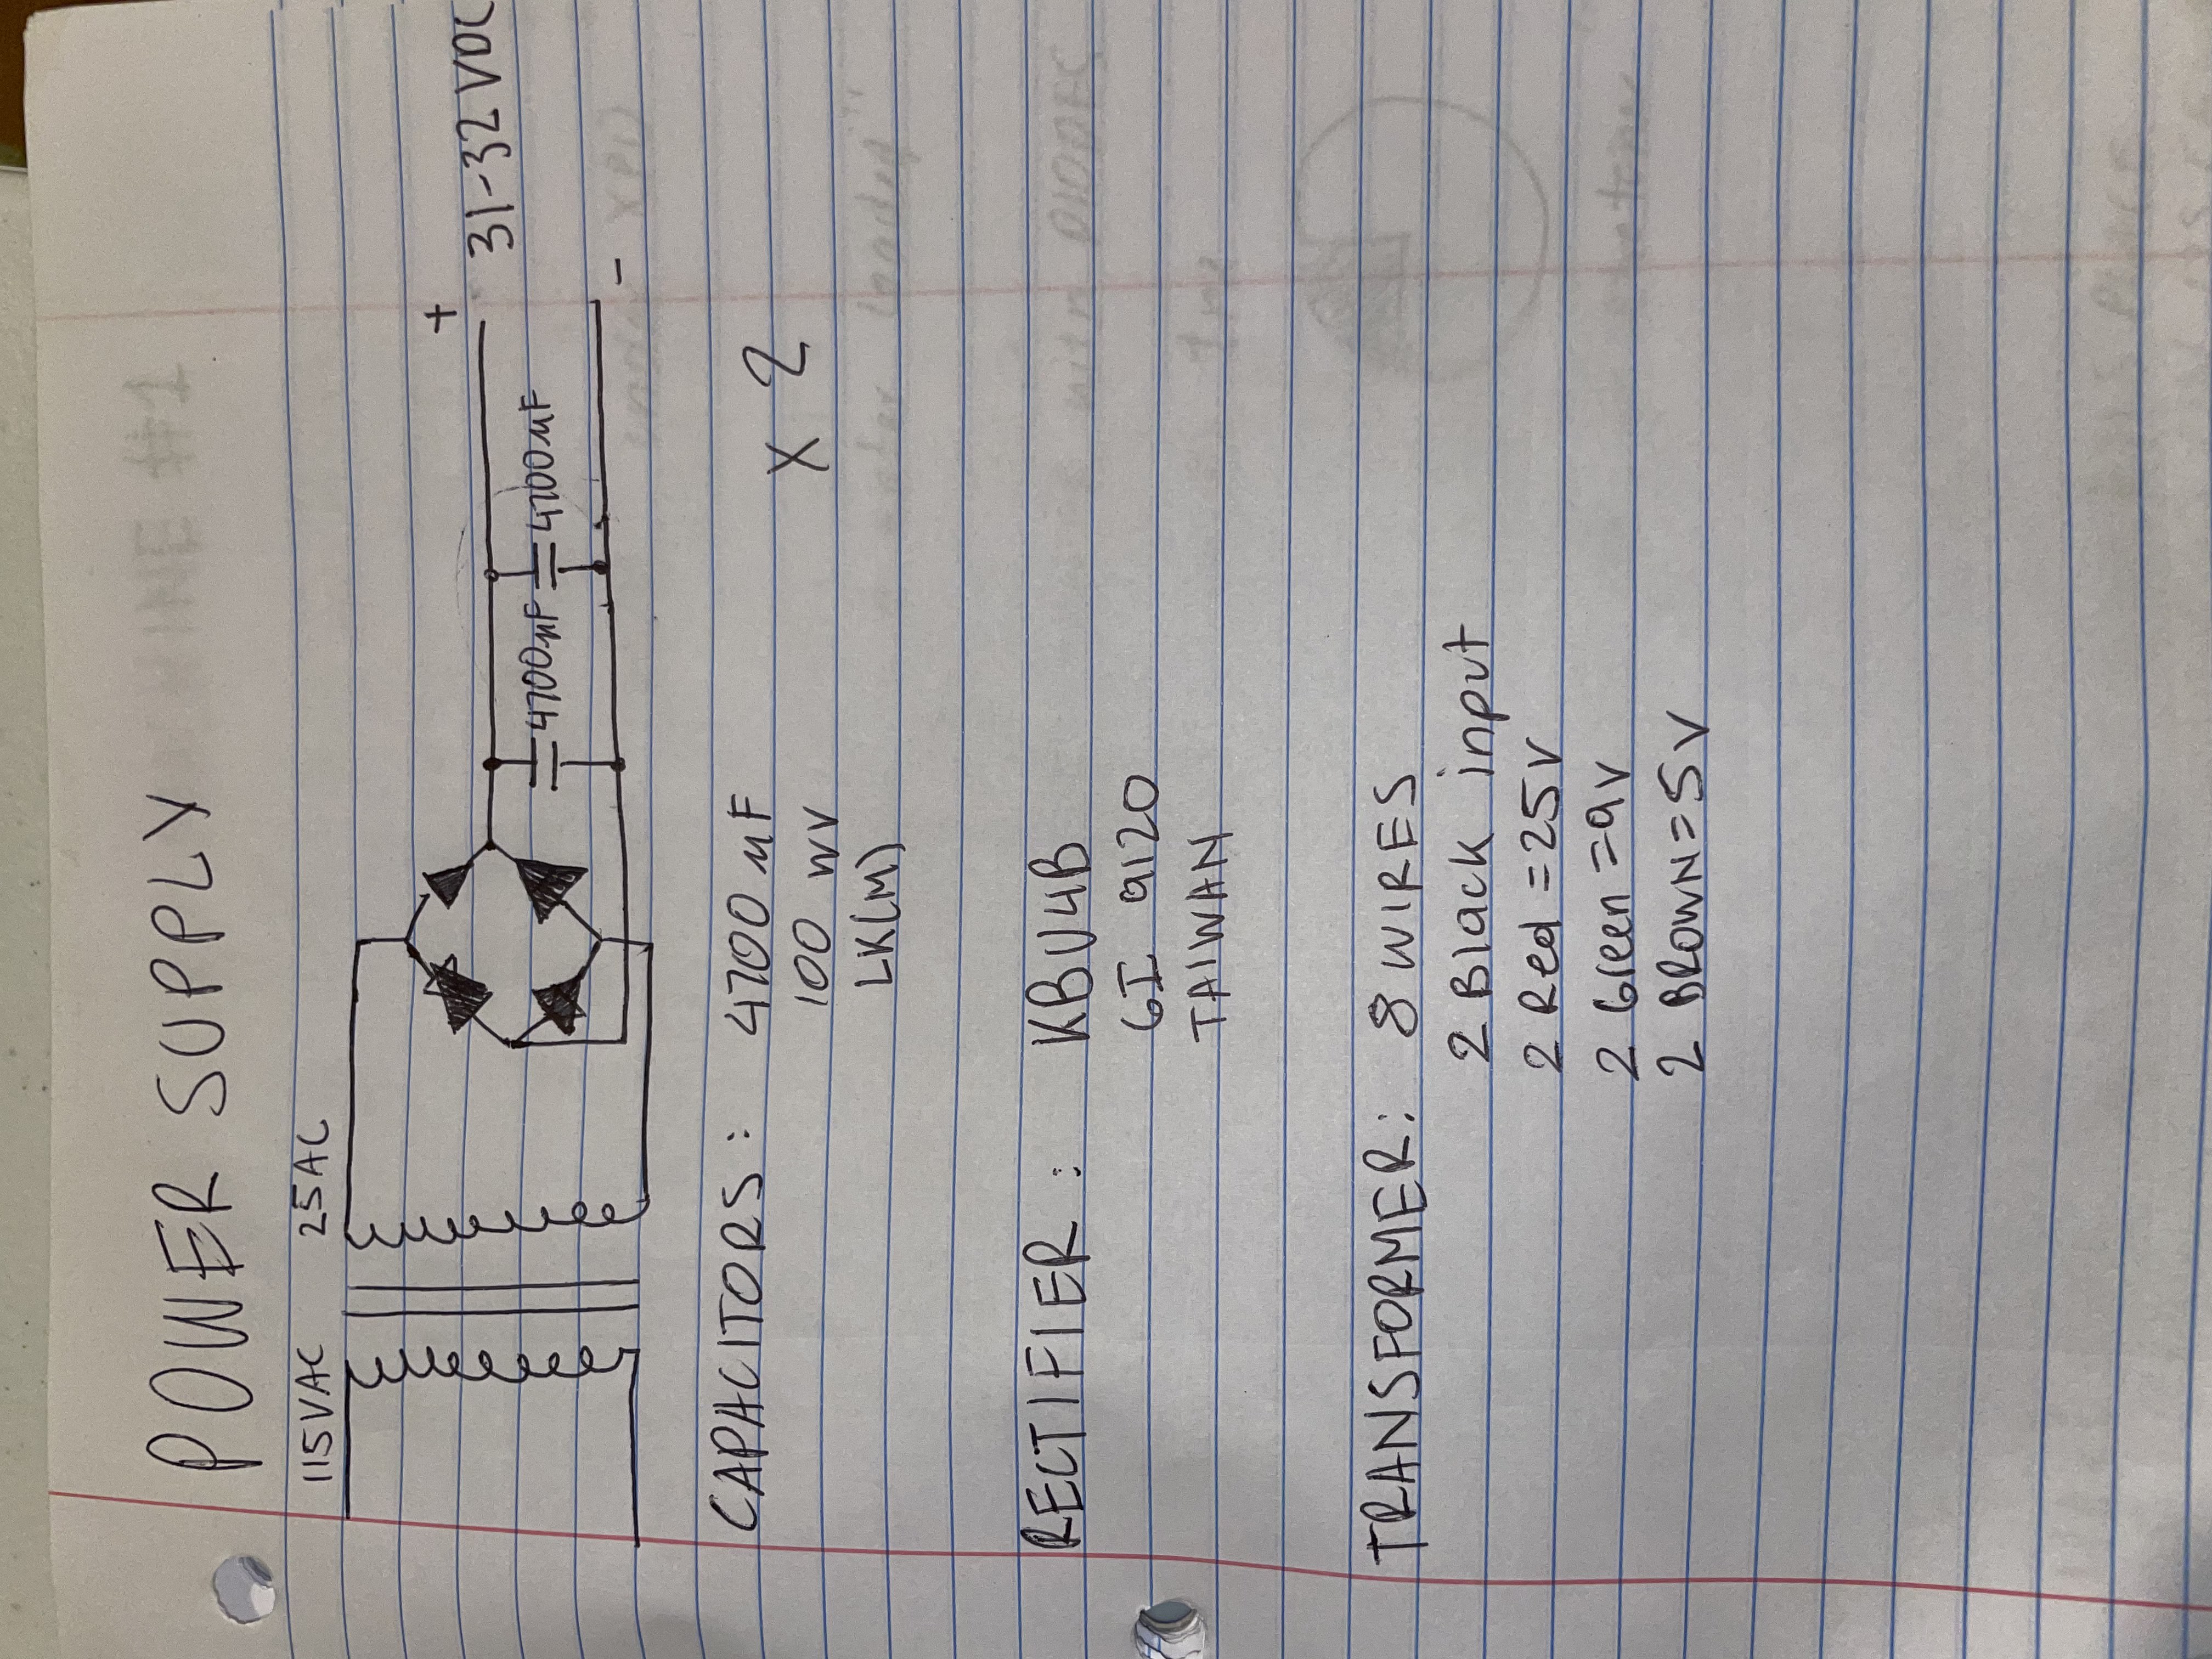 POWER SUPPLY
115VAC 25AC
+
31-32 VDC
4700µF 4700µF
-
CAPACITORS: 4700 µF
X 2
100 WV
LK(M)
RECTIFIER: KBU4B
GI 9120
TAIWAN
TRANSFORMER: 8 WIRES
2 Black input
2 Red = 25V
2 Green = 9V
2 BROWN = 5V